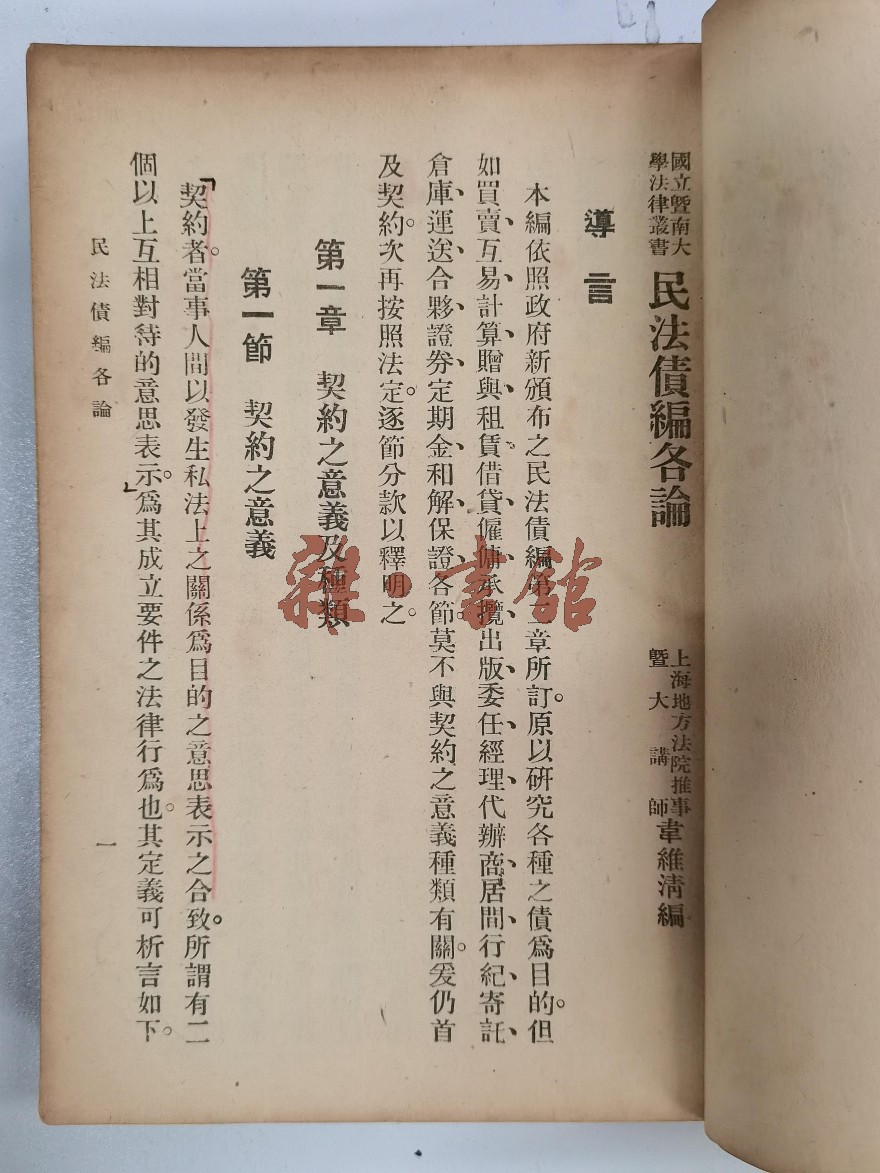 國立暨南大
學法律叢書
民法債編各論
上海地方法院推事
暨大講師
韋維清編
導言
本編依照政府新頒布之民法債編第二章所訂。原以研究各種之債爲目的。但
如買賣、互易、計算、贈與、租賃。借貸、僱傭、承攬、出版、委任、經理、代辦商、居間、行紀、寄託、
倉庫、運送、合夥、證券、定期金、和解、保證各節。莫不與契約之意義種類有關。爰仍首
及契約。次再按照法定。逐節分款以釋明之。
第一章 契約之意義及種類
第一節 契約之意義
「契約者。當事人間以發生私法上之關係爲目的之意思表示之合致。所謂有二
個以上互相對待的意思表示。」爲其成立要件之法律行爲也。其定義可析言如下。
民法債編各論
一
雜·書館